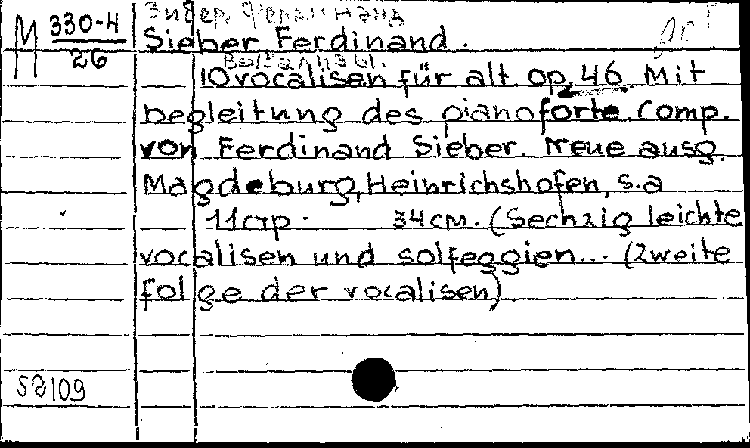 Зибер, Фердинанд
M 330-4
26
Sieber Ferdinand.
Вокализы.
10 vocalisen für alt op. 46. Mit
begleitung des pianoforte. Comp.
von Ferdinand Sieber. Neue ausg.
Magdeburg, Heinrichshofen, s.a
11стр. 34см. (Sechzig leichte
vocalisen und solfeggien... (Zweite
folge der vocalisen)
109